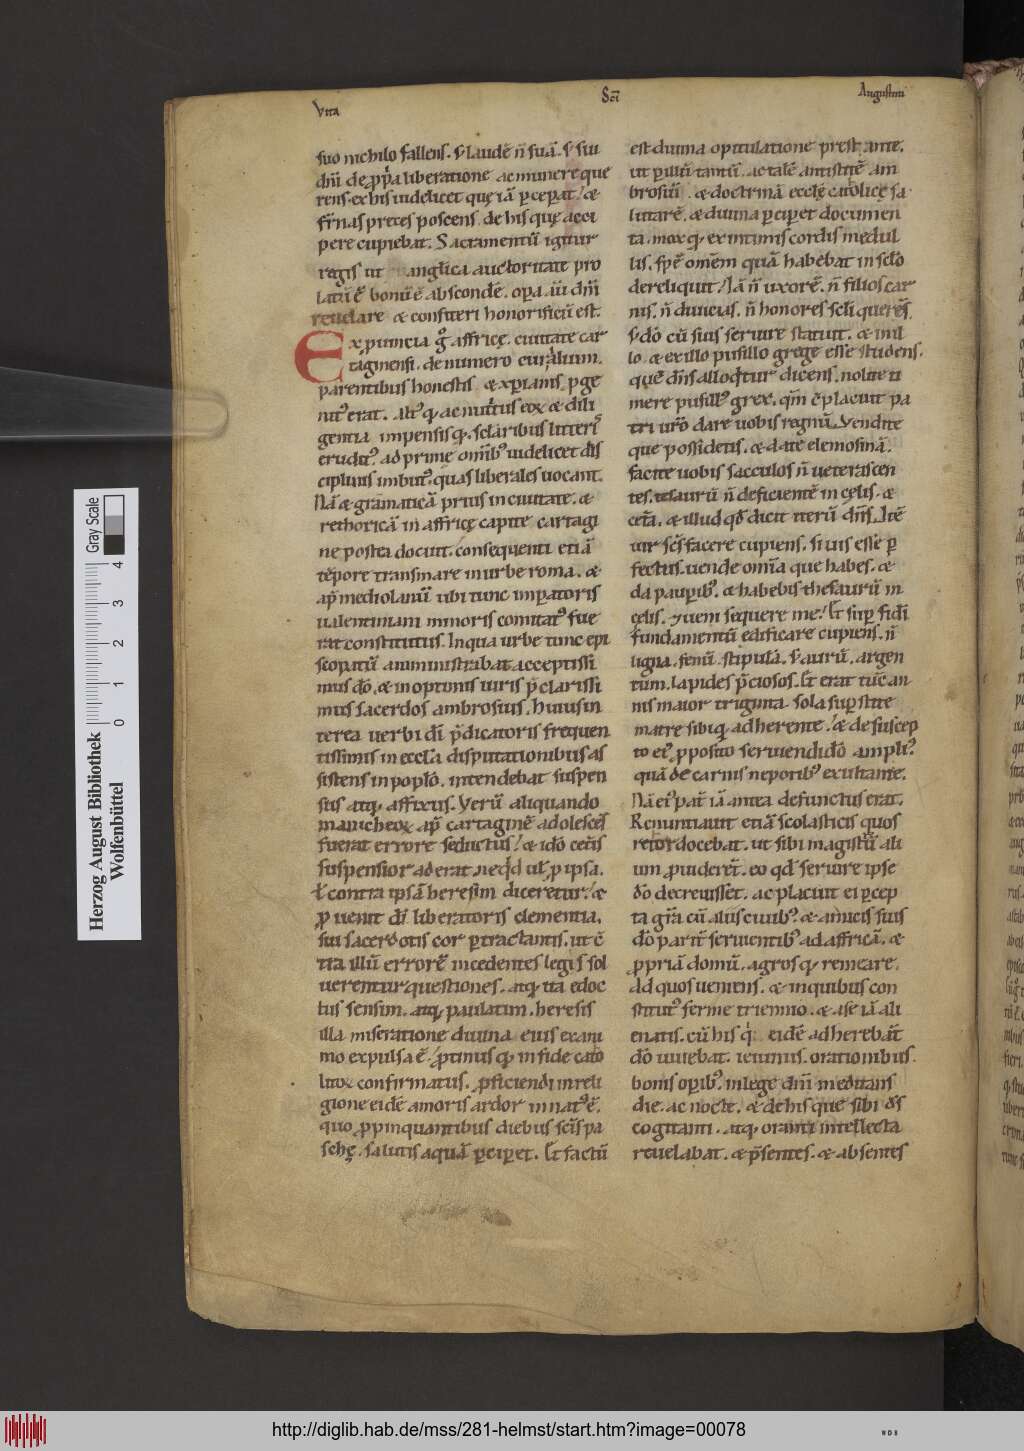 Vita Sci Augustini
suo nichilo fallens. s; laudē n̄ suā. s; sui
dn̄i de ꝓpͥa liberatione ac munere que
rens. ex his uidelicet quę iā ꝑceperat; &
fr̄nas preces poscens. de his quę acci
pere cupiebat. Sacramentū igitur
regis ut anglica auctoritate pro
latū ē bonū ē abscondē. oꝑa. aū dn̄i
reuelare & confiteri honorificū est.
Ex ꝓuincia gͦ affricę. ciuitate car
taginensi. de numero curialium.
parentibus honestis & xp̄ianis, ꝓge
nitꝰ erat. Altꝰ qͥ ac nutritus eoꝝ & dili
gentia impensisqͥ. sclaribus litteris
eruditꝰ. adprime omībꝰ uidelicet dis
ciplinis imbutꝰ. quas liberales uocant.
Nā & grāmaticā prius in ciuitate. &
rethoricā in affricę capite cartagi
ne postea docuit. consequenti etiā
tēpore transmare in urbe roma. &
ap̄ mediolanū ubi tunc imꝑatoris
ualentiniani minoris comitatꝰ fue
rat constitutus. In qua urbe tunc epi
scopatū amministrabat acceptissi
mus dō. & in optimis uiris p̄clarissi
mus sacerdos ambrosius. huius in
terea uerbi dī p̄dicatoris frequen
tissimis in eccl̄a disputationibus as
sistens in poplō. intendebat suspen
sus atqͥ affixus. Verū aliquando
manicheoꝝ ap̄ cartaginē adolescēs
fuerat errore seductus; & idō cet̄is
suspensior aderat. neqͥd uł ꝓ ipsa.
ł contra ipsā heresim diceretur; &
ꝓuenit dī liberatoris clementia.
sui sacerdotis cor ꝑtractantis. ut c̄
tra illū errorē incedentes legis sol
uerentur questiones. atqͥ ita edoc
tus sensim. atqͥ paulatim. heresis
illa miseratione diuina eius exani
mo expulsa ē. ꝓtinusqͥ in fide catho
licoꝝ confirmatus. ꝓficiendi in reli
gione eidē amoris ardor innatꝰ ē.
quo ꝓpinquantibus diebus scīs pa
schę. salutis aquā ꝑciꝑet. Et factū
est diuina opitulatione prestante.
ut ꝑ illū tantū. ac talē antistitē am
brosiū. & doctrinā ecclę catholicę sa
lutarē. & diuina ꝑciꝑet documen
ta. moxqͥ ex intimis cordis medul
lis. spē omēm quā habebat in sclō
dereliquit; Iā n̄ uxorē. n̄ filios car
nis. n̄ diuicias. n̄ honores scli querēs.
s; dō cū suis seruire statuit. & in il
lo. & ex illo pusillo grege esse studens.
quē dn̄s alloqͥtur dicens. nolite ti
mere pusillꝰ grex. qm̄ cp̄lacuit pa
tri urō dare uobis regnū. Vendite
que possidetis. & date elemosinā.
facite uobis sacculos n̄ ueterascen
tes. tesaurū n̄ deficientē in cęlis. &
cet̄a. & illud qd̄ dicit iterū dn̄s. Itē
uir scs̄ facere cupiens. si uis esse ꝑ
fectus. uende omīa que habes. &
da pauꝑibꝰ. & habebis thesaurū in
cęlis. & ueni sequere me; Et suꝑ fidī
fundamentū edificare cupiens. n̄
ligna. fenū. stipulā. s; aurū. argen
tum. lapides p̄ciosos. Et erat tūc an
nis maior triginta. sola suꝑstite
matre sibiqͥ adherente; & de suscep
to eiꝰ ꝓposito seruiendi dō ampliꝰ
quā de carnis neporibꝰ exultante.
Nā eiꝰ pat̄ iā antea defunctus erat.
Renuntiauit etiā scolasticis quos
retor docebat. ut sibi magistrū ali
um ꝓuiderēt. eo qd̄ seruire ipse
dō decreuisset. ac placuit ei ꝑcep
ta gr̄a cū aliis ciuibꝰ. & amicis suis
dō parit̄ seruientibꝰ ad affricā. &
ꝓpriā domū. agrosqͥ remeare.
Ad quos ueniens. & in quibus con
stitutꝰ ferme triennio. & a se iā ali
enatis. cū his qͥ eidē adherebāt
dō uiuebat. ieiuniis. orationibus
bonis oꝑibꝰ. in lege dn̄i meditans
die. ac nocte. & de his que sibi ds̄
cogitanti. atqͥ oranti intellecta
reuelabat. & p̄sentes. & absentes
Herzog August Bibliothek
Wolfenbüttel
0 1 2 3 4
Gray Scale
http://diglib.hab.de/mss/281-helmst/start.htm?image=00078